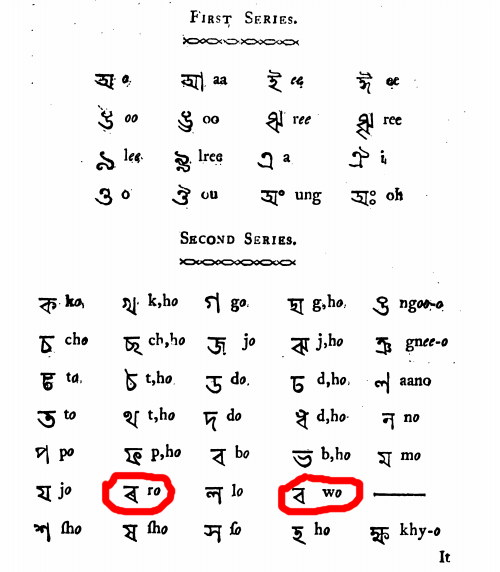 FIRST SERIES.
অ o. আ aa ই ee ঈ ee
উ oo ঊ oo ঋ ree ৠ ree
ঌ lee. ৡ lree এ a ঐ i,
ও o ঔ ou অং ung অঃ oh
SECOND SERIES.
ক ko, খ k,ho গ go. ঘ g,ho. ঙ ngoo-o
চ cho ছ ch,ho জ jo ঝ j,ho ঞ gnee-o
ট ta. ঠ t,ho. ড do. ঢ d,ho. ণ aano
ত to থ t,ho দ do ধ d,ho. ন no
প po ফ p,ho ব bo ভ b,ho ম mo
য jo ৰ ro ল lo ব wo ———
শ ſho ষ ſho স ſo হ ho ক্ষ khy-o
It